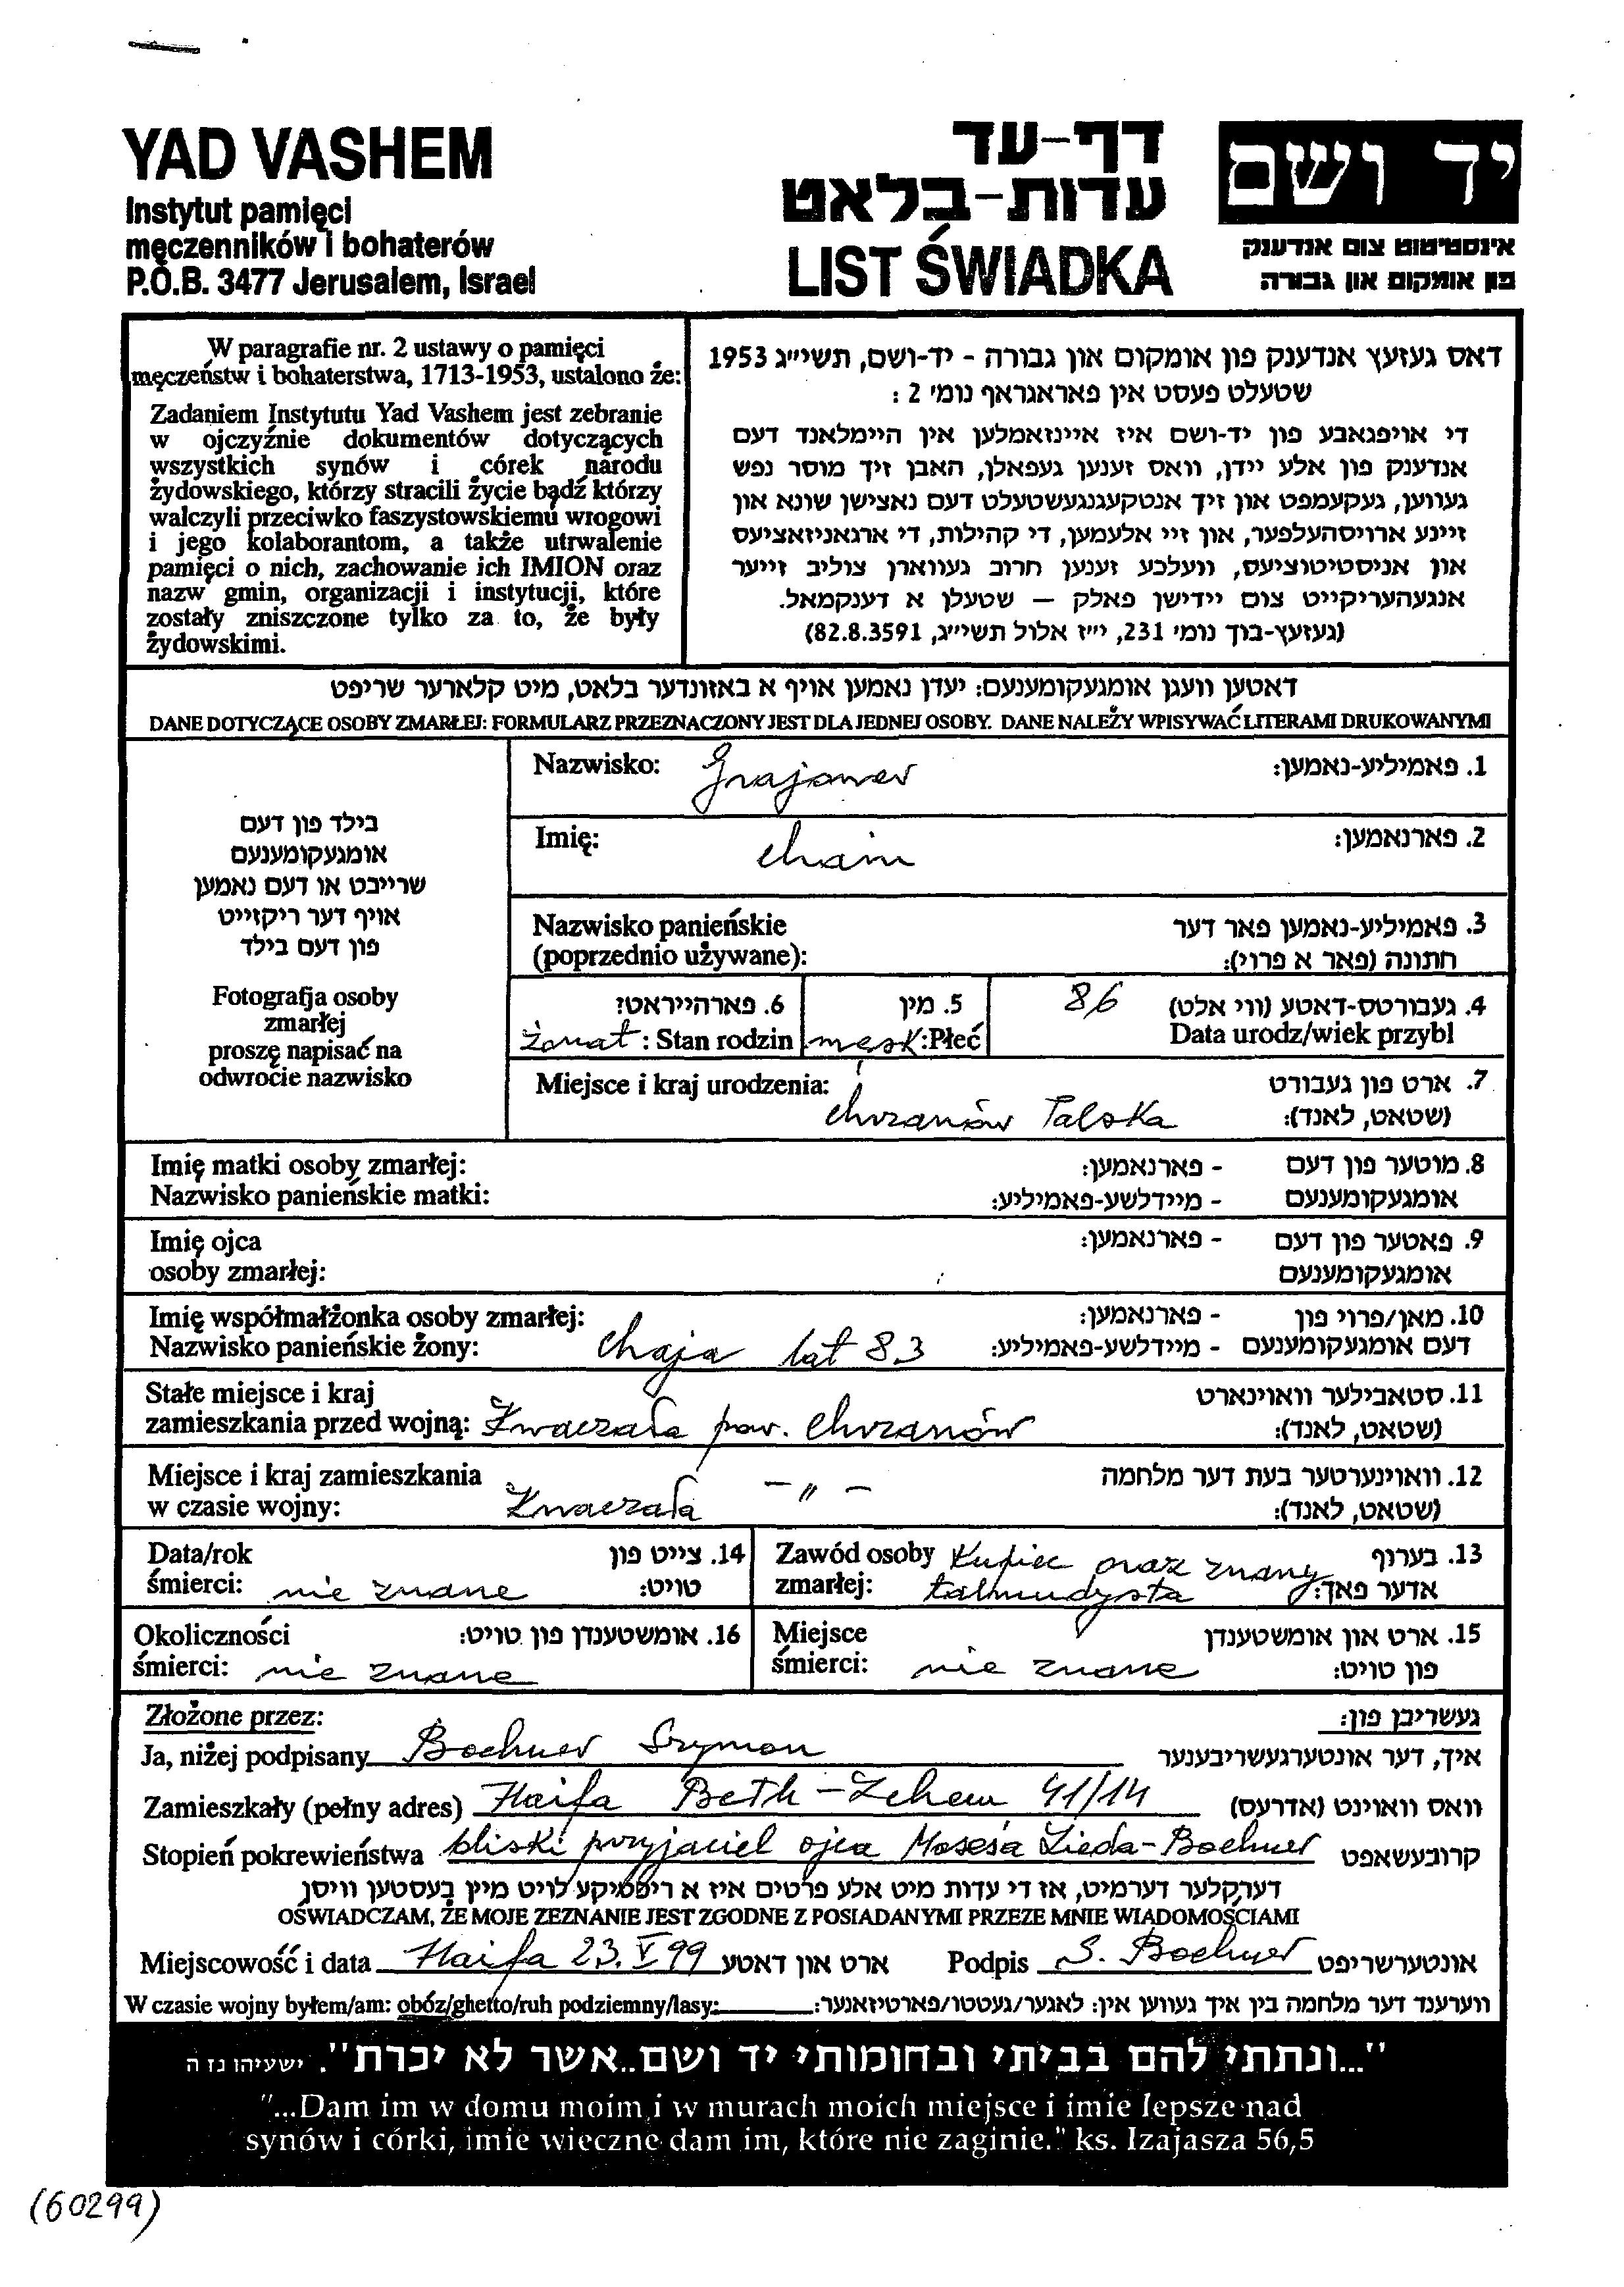 YAD VASHEM
Instytut pamięci
męczenników i bohaterów
P.O.B. 3477 Jerusalem, Israel
דף-עד
עדות-בלאט
LIST ŚWIADKA
יד ושם
אינסטיטוט צום אנדענק
פון אומקום און גבורה
W paragrafie nr. 2 ustawy o pamięci
męczeństw i bohaterstwa, 1713-1953, ustalono że:
Zadaniem Instytutu Yad Vashem jest zebranie
w ojczyźnie dokumentów dotyczących
wszystkich synów i córek narodu
żydowskiego, którzy stracili życie bądź którzy
walczyli przeciwko faszystowskiemu wrogowi
i jego kolaborantom, a także utrwalenie
pamięci o nich, zachowanie ich IMION oraz
nazw gmin, organizacji i instytucji, które
zostały zniszczone tylko za to, że były
żydowskimi.
דאס געזעץ אנדענק פון אומקום און גבורה - יד-ושם, תשי״ג 1953
שטעלט פעסט אין פאראגראף נומ׳ 2 :
די אויפגאבע פון יד-ושם איז איינזאמלען אין היימלאנד דעם
אנדענק פון אלע יידן, וואס זענען געפאלן, האבן זיך מוסר נפש
געווען, געקעמפט און זיך אנטקעגנגעשטעלט דעם נאצישן שונא און
זיינע ארויסהעלפער, און זיי אלעמען, די קהילות, די ארגאניזאציעס
און אניסטיטוציעס, וועלכע זענען חרוב געווארן צוליב זייער
אנגעהעריקייט צום יידישן פאלק – שטעלן א דענקמאל.
(געזעץ-בוך נומ׳ 231, י״ז אלול תשי״ג, 82.8.3591)
דאטען וועגן אומגעקומענעם: יעדן נאמען אויף א באזונדער בלאט, מיט קלארער שריפט
DANE DOTYCZĄCE OSOBY ZMARŁEJ: FORMULARZ PRZEZNACZONY JEST DLA JEDNEJ OSOBY. DANE NALEŻY WPISYWAĆ LITERAMI DRUKOWANYMI
בילד פון דעם
אומגעקומענעם
שרייבט או דעם נאמען
אויף דער ריקזייט
פון דעם בילד
Fotografja osoby
zmarłej
proszę napisać na
odwrocie nazwisko
Nazwisko: Grajower 1. פאמיליע-נאמען:
Imię: Chaim 2. פארנאמען:
Nazwisko panieńskie 3. פאמיליע-נאמען פאר דער
(poprzednio używane): חתונה (פאר א פרוי):
6. פארהייראט? 5. מין 86 4. געבורטס-דאטע (ווי אלט)
żonat : Stan rodzin męsk :Płeć Data urodz/wiek przybl
Miejsce i kraj urodzenia: 7. ארט פון געבורט
Chrzanów Polska (שטאט, לאנד):
Imię matki osoby zmarłej: - פארנאמען: 8. מוטער פון דעם
Nazwisko panieńskie matki: - מיידלשע-פאמיליע: אומגעקומענעם
Imię ojca - פארנאמען: 9. פאטער פון דעם
osoby zmarłej: אומגעקומענעם
Imię współmałżonka osoby zmarłej: - פארנאמען: 10. מאן/פרוי פון
Nazwisko panieńskie żony: Chaja lat 83 - מיידלשע-פאמיליע: דעם אומגעקומענעם
Stałe miejsce i kraj 11. סטאבילער וואוינארט
zamieszkania przed wojną: Kwaczała pow. Chrzanów (שטאט, לאנד):
Miejsce i kraj zamieszkania 12. וואוינערטער בעת דער מלחמה
w czasie wojny: Kwaczała - " - (שטאט, לאנד):
Data/rok 14. צייט פון
śmierci: nie znane טויט:
Zawód osoby Kupiec oraz znany 13. בערוף
zmarłej: talmudysta אדער פאך:
Okoliczności 16. אומשטענדן פון טויט:
śmierci: nie znane
Miejsce 15. ארט און אומשטענדן
śmierci: nie znane פון טויט:
Złożone przez: געשריבן פון:
Ja, niżej podpisany Bochner Szymon איך, דער אונטערגעשריבענער
Zamieszkały (pełny adres) Haifa Beth-Lehem 41/14 וואס וואוינט (אדרעס)
Stopień pokrewieństwa bliski przyjaciel ojca Mosesa Lieda-Bochner קרובעשאפט
דערקלער דערמיט, אז די עדות מיט אלע פרטים איז א ריכטיקע לויט מיין בעסטען וויסן
OŚWIADCZAM, ŻE MOJE ZEZNANIE JEST ZGODNE Z POSIADANYMI PRZEZE MNIE WIADOMOŚCIAMI
Miejscowość i data Haifa 23.V.99 ארט און דאטע Podpis S. Bochner אונטערשריפט
W czasie wojny byłem/am: obóz/ghetto/ruh podziemny/lasy: ווערענד דער מלחמה בין איך געווען אין: לאגער/געטטו/פארטיזאנער:
"...ונתתי להם בביתי ובחומותי יד ושם..אשר לא יכרת". ישעיהו נז ה
"...Dam im w domu moim i w murach moich miejsce i imie lepsze nad
synów i córki, imie wieczne dam im, które nie zaginie." ks. Izajasza 56,5
(60299)